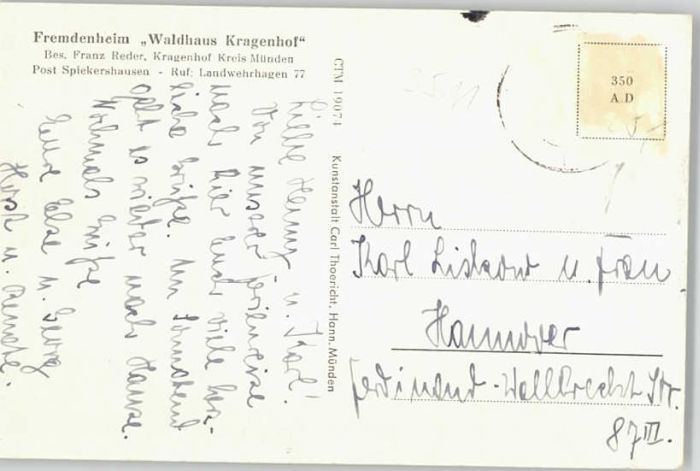 Fremdenheim „Waldhaus Kragenhof"
Bes. Franz Reder, Kragenhof Kreis Münden
Post Spiekershausen - Ruf: Landwehrhagen 77
Liebe Henny u. Karl!
Von unserer Ferienreise
nach hier Euch viele herz-
liche Grüße. Am Sonnabend
geht es wieder nach Hause.
Nochmals Grüße
Eure Else u. Georg
Horst u. Renate.
CTM 19074 Kunstanstalt Carl Thoericht, Hann. Münden
350
A D
Herrn
Karl u. Frau
Hannover
Ferdinand-Wallbrecht Str.
87 III.